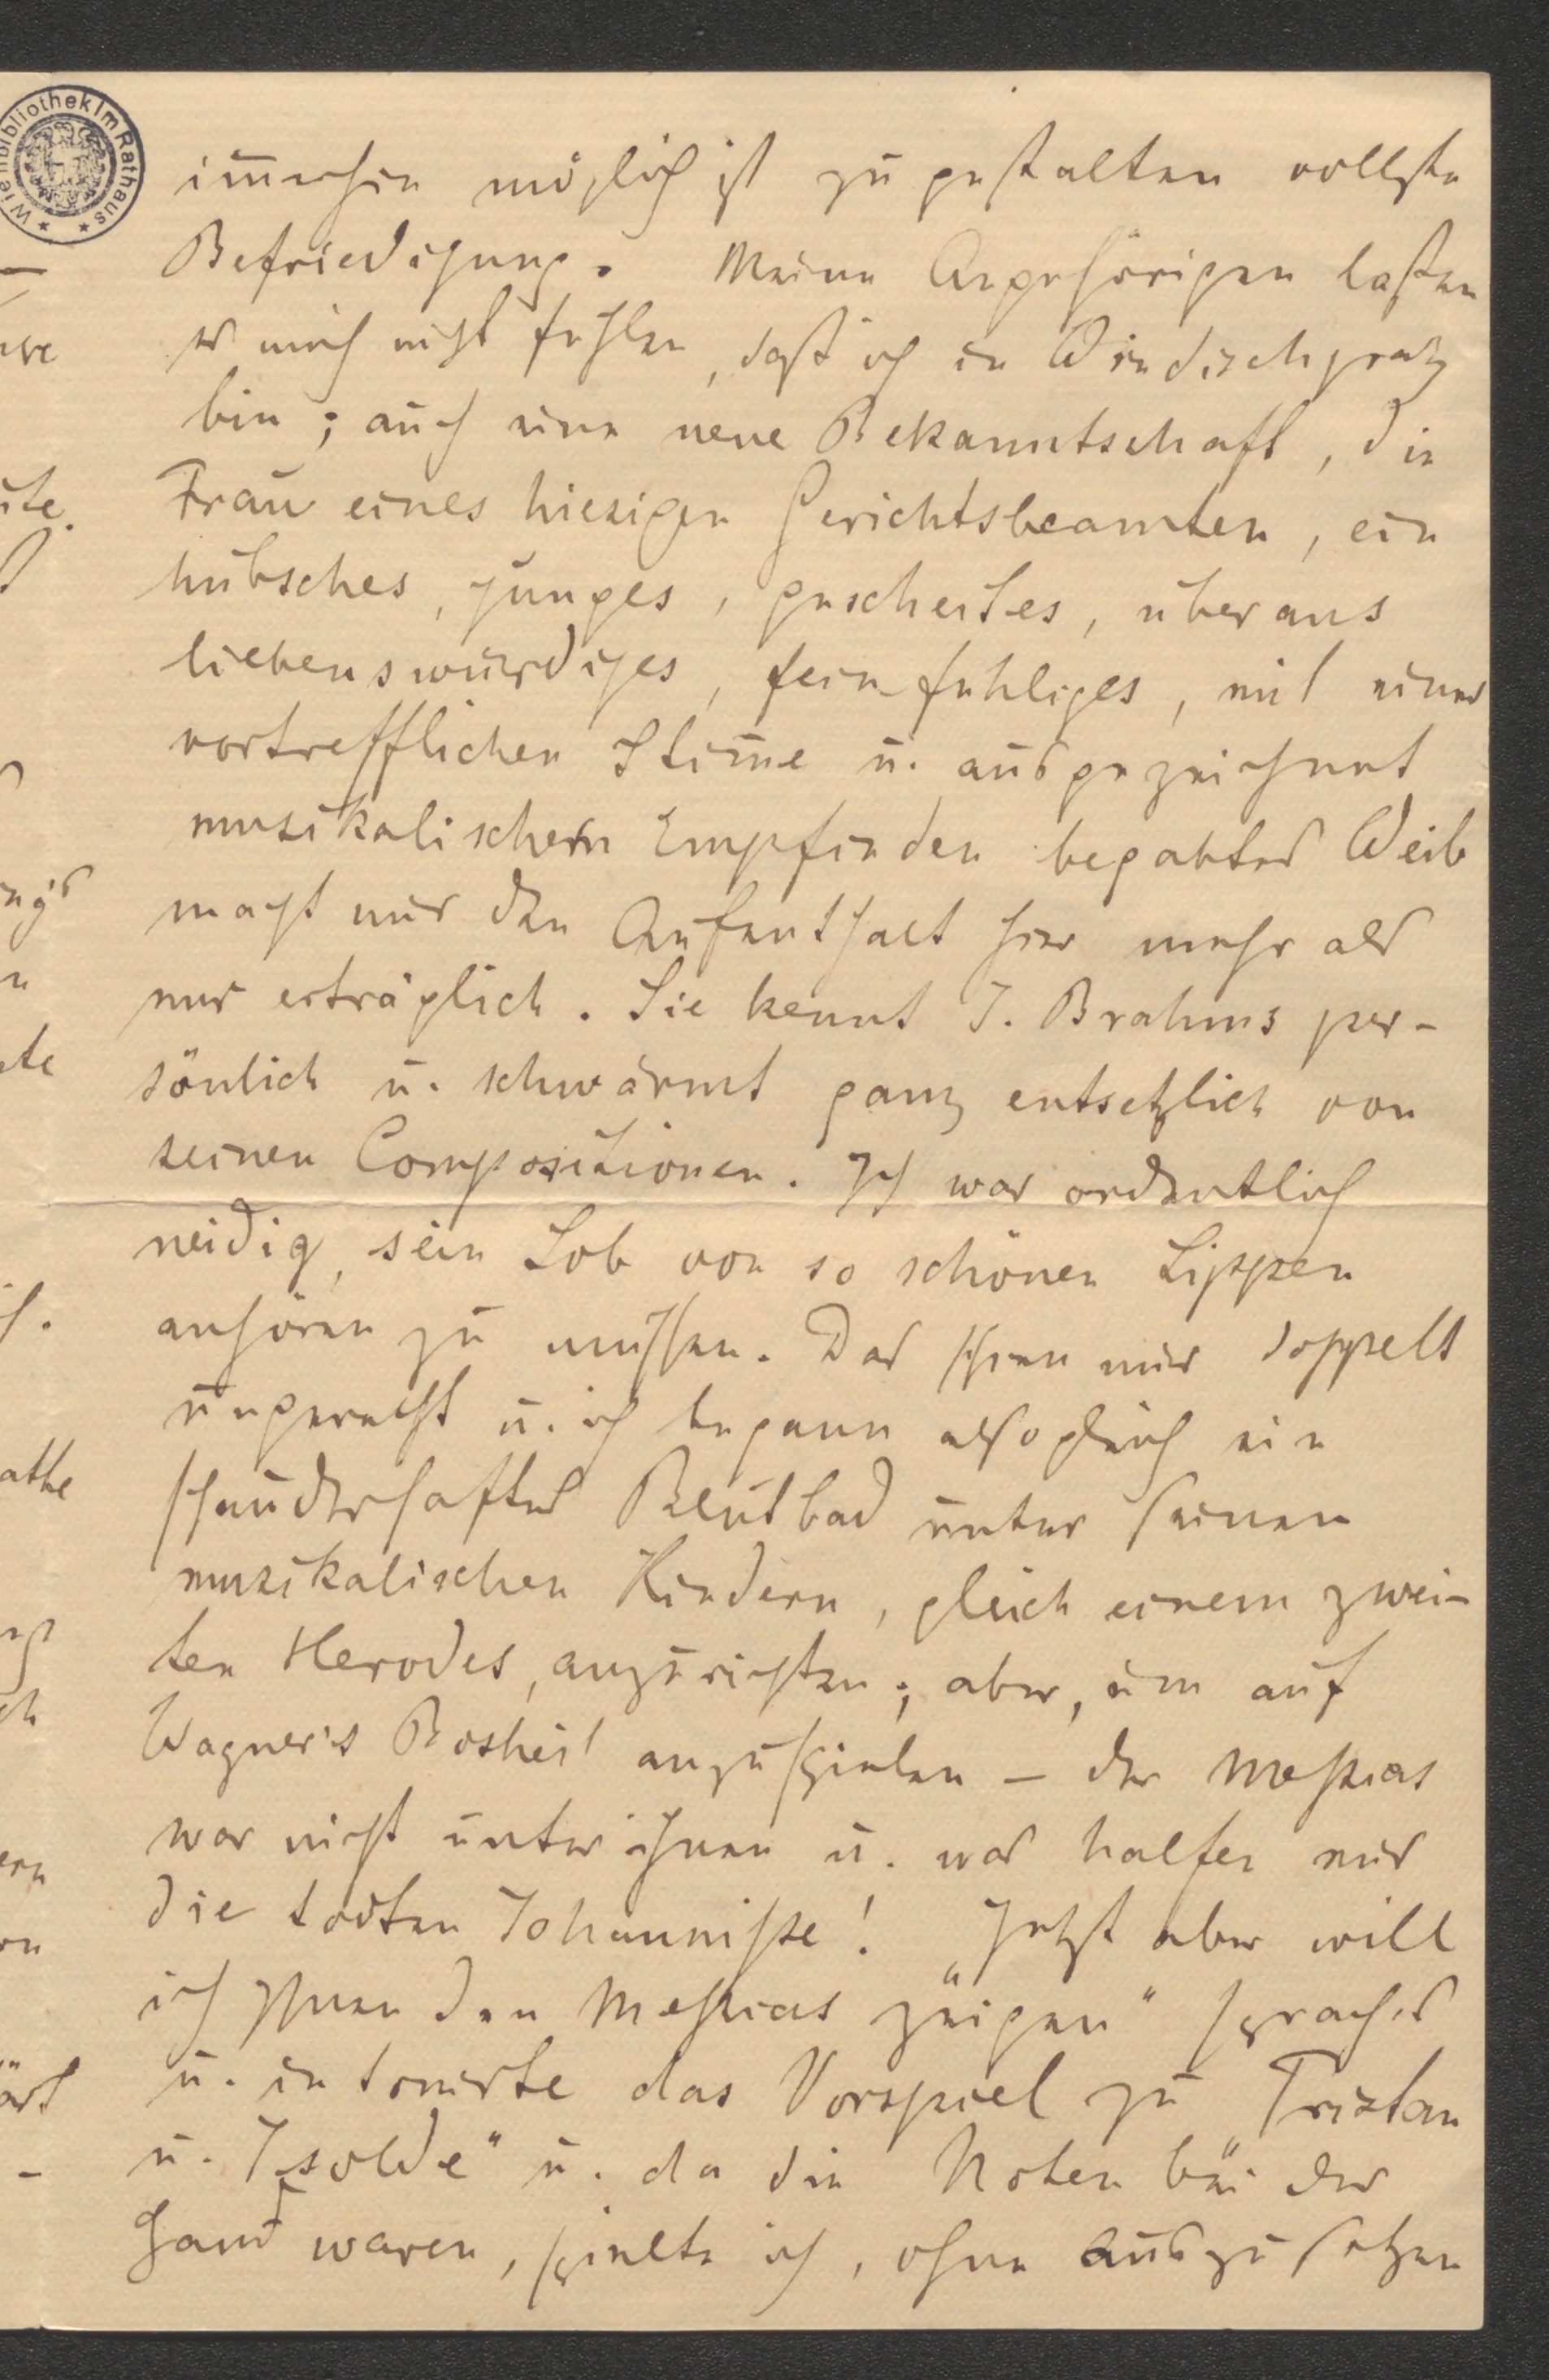 Wienbibliothek Im Rathaus
im̄erhin möglich ist zu gestalten vollste
Befriedigung. Meine Angehörigen laßen
es mich nicht fühlen, daß ich in Windischgratz
bin; auch eine neue Bekanntschaft, die
Frau eines hiesigen Gerichtsbeamten, ein
hübsches, junges, gescheites, überaus
liebenswürdiges, feinfühliges, mit einer
vortrefflichen Stim̄e u. ausgezeichnet
musikalischem Empfinden begabtes Weib
macht mir den Aufenthalt hier mehr als
nur erträglich. Sie kennt J. Brahms per-
sönlich u. schwärmt ganz entsetzlich von
seinen Compositionen. Ich war ordentlich
neidig, sein Lob von so schönen Lippen
anhören zu müssen. Das schien mir doppelt
ungerecht u. ich begann alsogleich ein
schauderhaftes Blutbad unter seinen
musikalischen Kindern, gleich einem zwei-
ten Herodes, anzurichten; aber, um auf
Wagner's Bosheit anzuspielen – der Meßias
war nicht unter ihnen u. was halfen mir
die todten Johanniße! „Jetzt aber will
ich Ihnen den Meßias zeigen" sprach's
u. intonirte das Vorspiel zu „Tristan
u. Isolde" u. da die Noten bei der
Hand waren, spielte ich, ohne auszusetzen